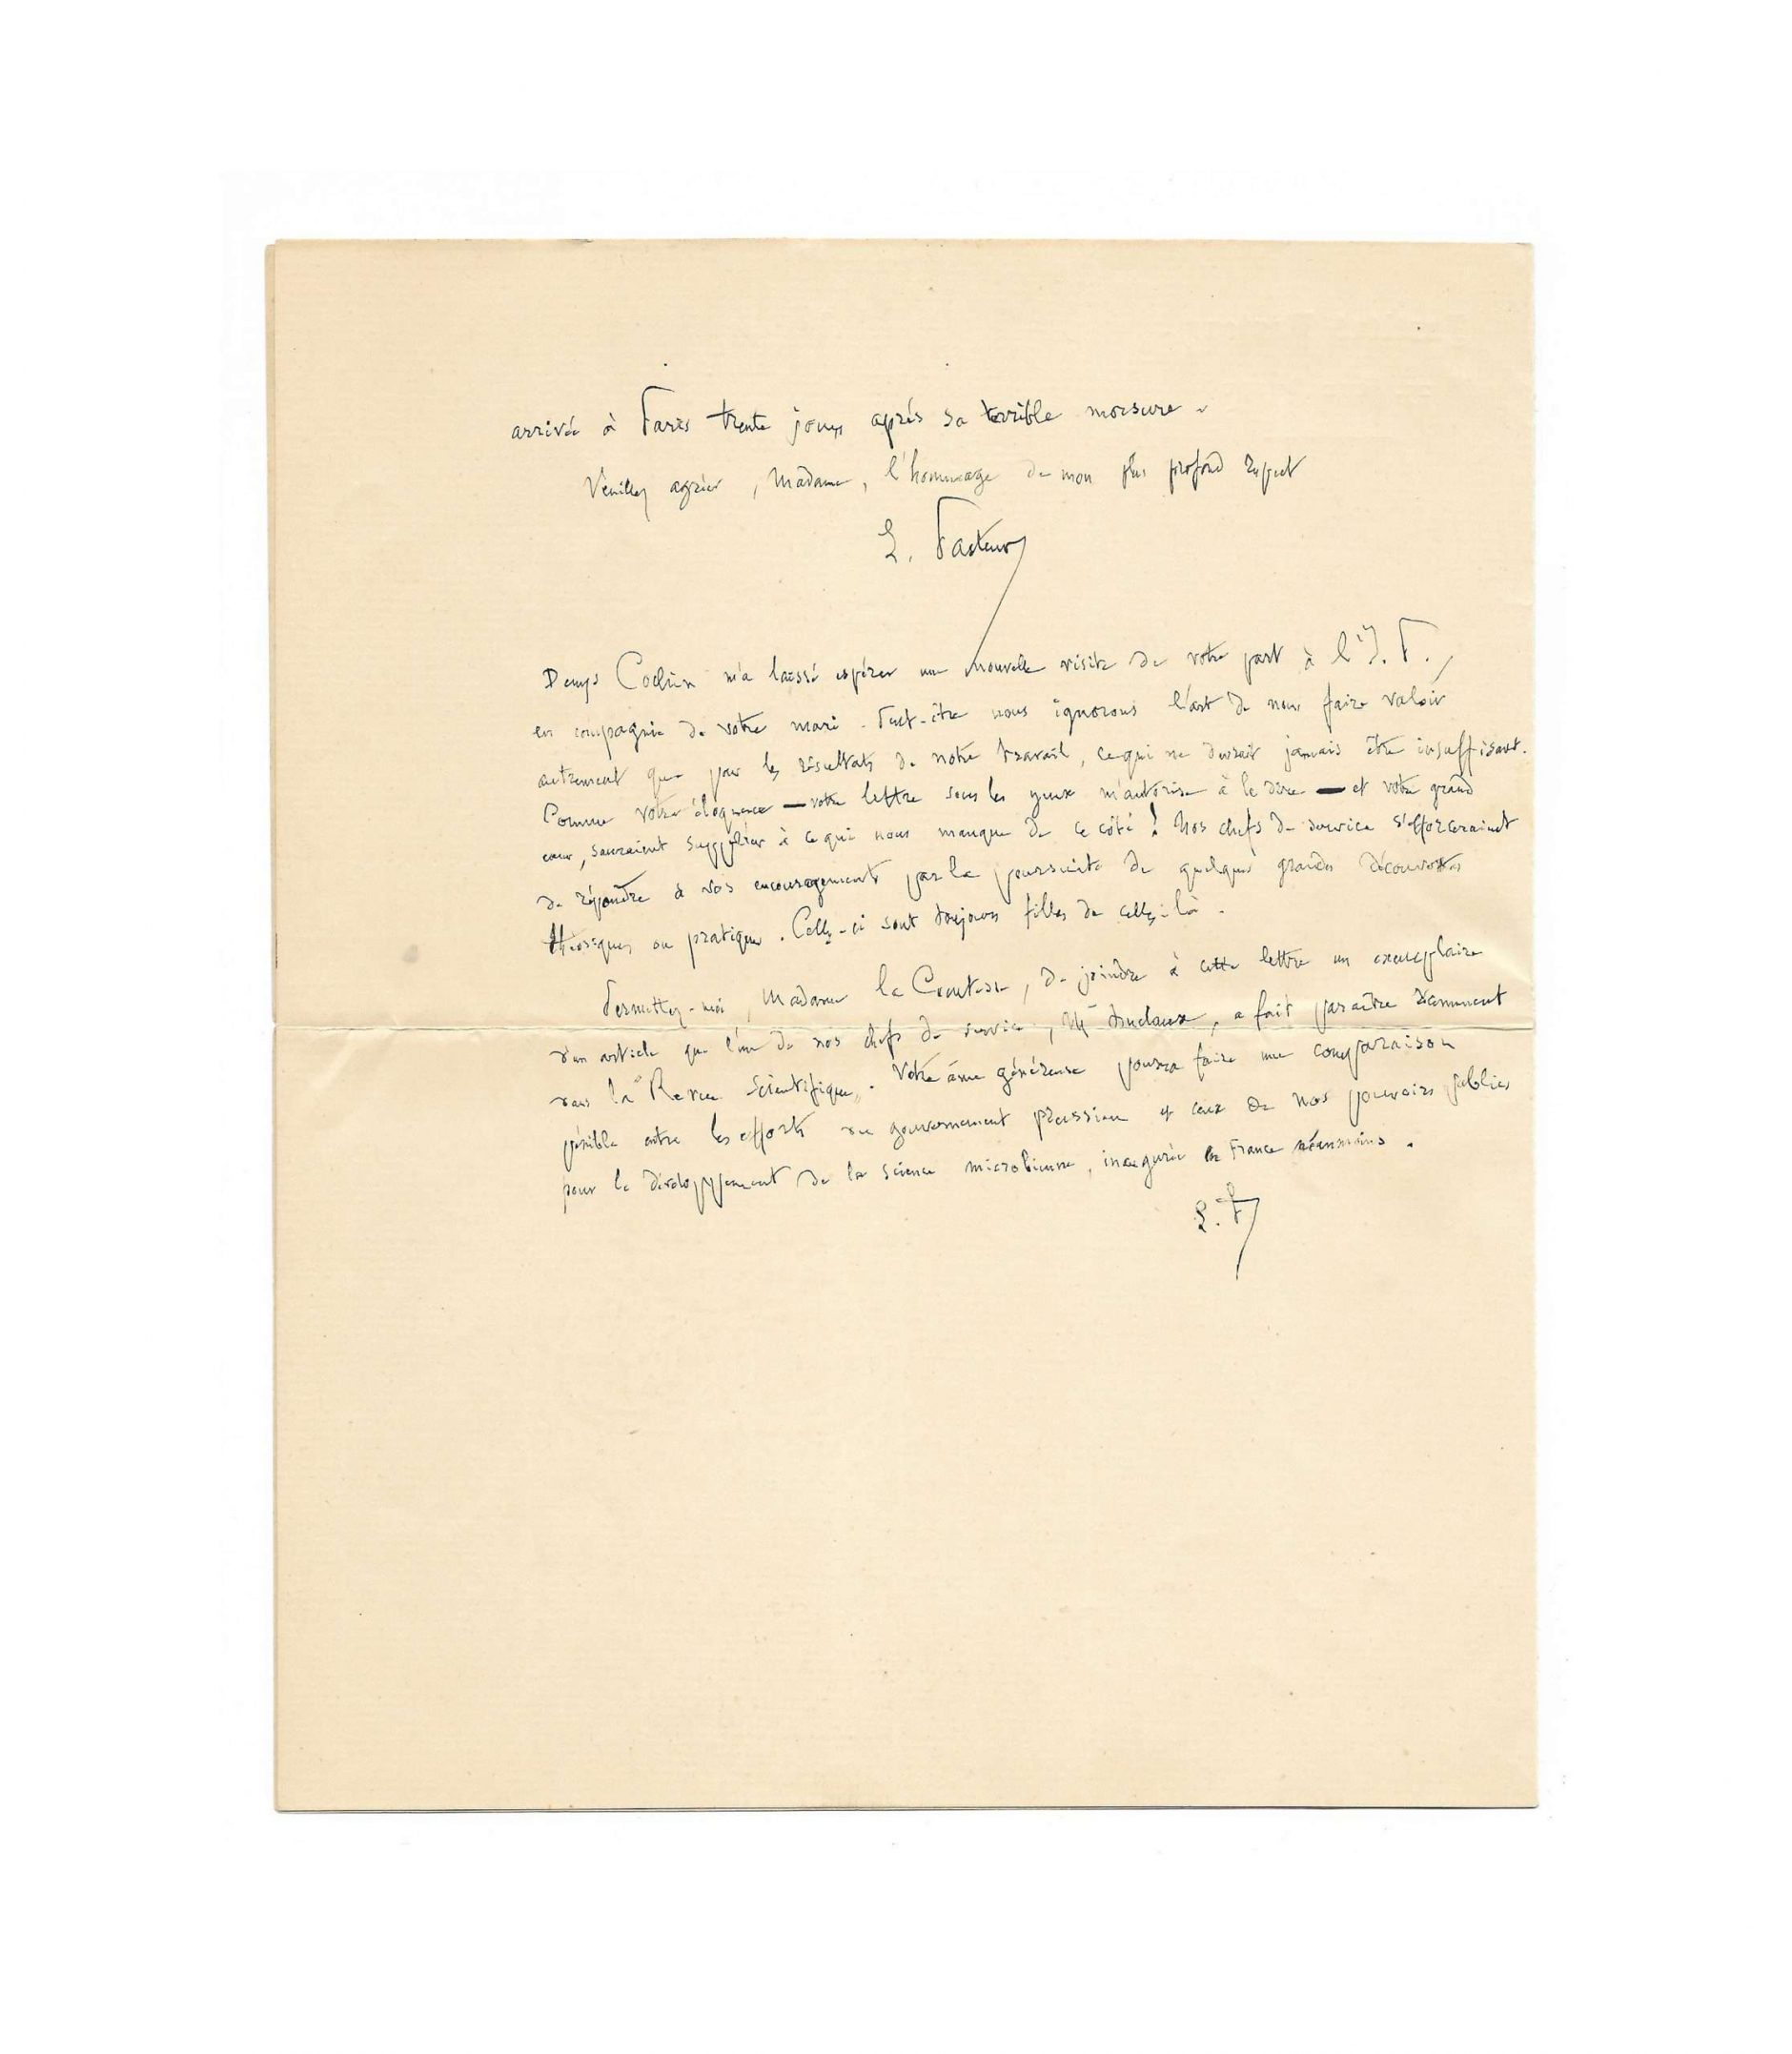 arrivée à Paris trente jours après sa terrible morsure.
Veuillez agréer, Madame, l'hommage de mon plus profond respect
L. Pasteur
Denys Cochin m'a laissé espérer une nouvelle visite de votre part à l'I. P.,
en compagnie de votre mari. Peut-être nous ignorons l'art de nous faire valoir
autrement que par les résultats de notre travail, ce qui ne devrait jamais être insuffisant.
Comme votre éloquence — votre lettre sous les yeux m'autorise à le dire — et votre grand
cœur, sauraient suppléer à ce qui nous manque de ce côté! Nos chefs de service s'efforceraient
de répondre à vos encouragements par la poursuite de quelques grandes découvertes
théoriques ou pratiques. Celles-ci sont toujours filles de celles-là.
Permettez-moi, Madame la Comtesse, de joindre à cette lettre un exemplaire
d'un article que l'un de nos chefs de service, Mr Duclaux, a fait paraître récemment
dans la "Revue Scientifique". Votre âme généreuse pourra faire une comparaison
pénible entre les efforts du gouvernement prussien et ceux de nos pouvoirs publics
pour le développement de la science microbienne, inaugurée en France néanmoins.
L. P